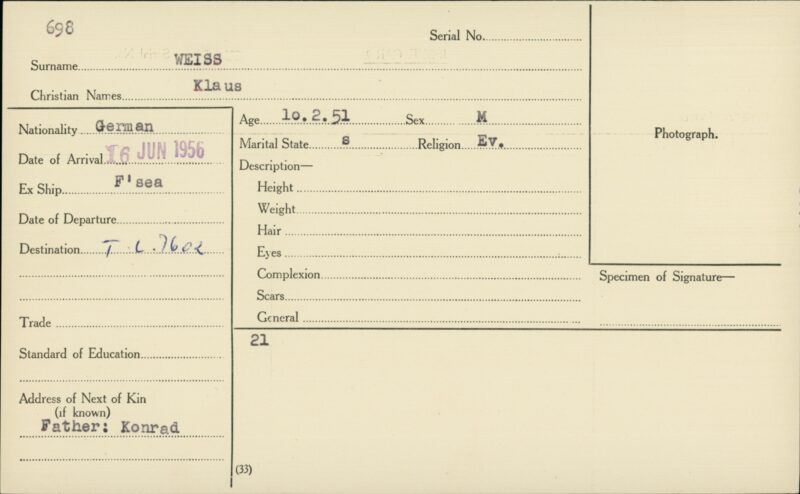 698
Serial No.
Surname WEISS
Christian Names Klaus
Nationality German
Date of Arrival 16 JUN 1956
Ex Ship F'sea
Date of Departure
Destination T.C. 7602
Trade
Standard of Education
Address of Next of Kin
(if known)
Father: Konrad
Age 10.2.51 Sex M
Marital State s Religion Ev.
Description—
Height
Weight
Hair
Eyes
Complexion
Scars
General
21
(33)
Photograph.
Specimen of Signature—